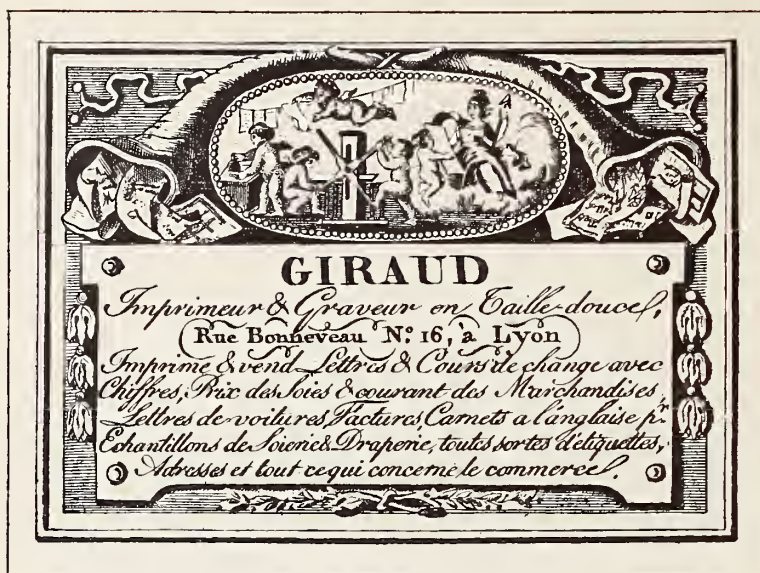 GIRAUD
Imprimeur & Graveur en Taille-douce,
Rue Bonneveau N.º 16, à Lyon
Imprime & vend Lettres & Cours de change avec
Chiffres, Prix des Soies & courant des Marchandises,
Lettres de voitures, Factures, Carnets a l'anglaise p.r
Echantillons de Soierie & Draperie, toutes sortes d'etiquettes,
Adresses et tout ce qui concerne le commerce.